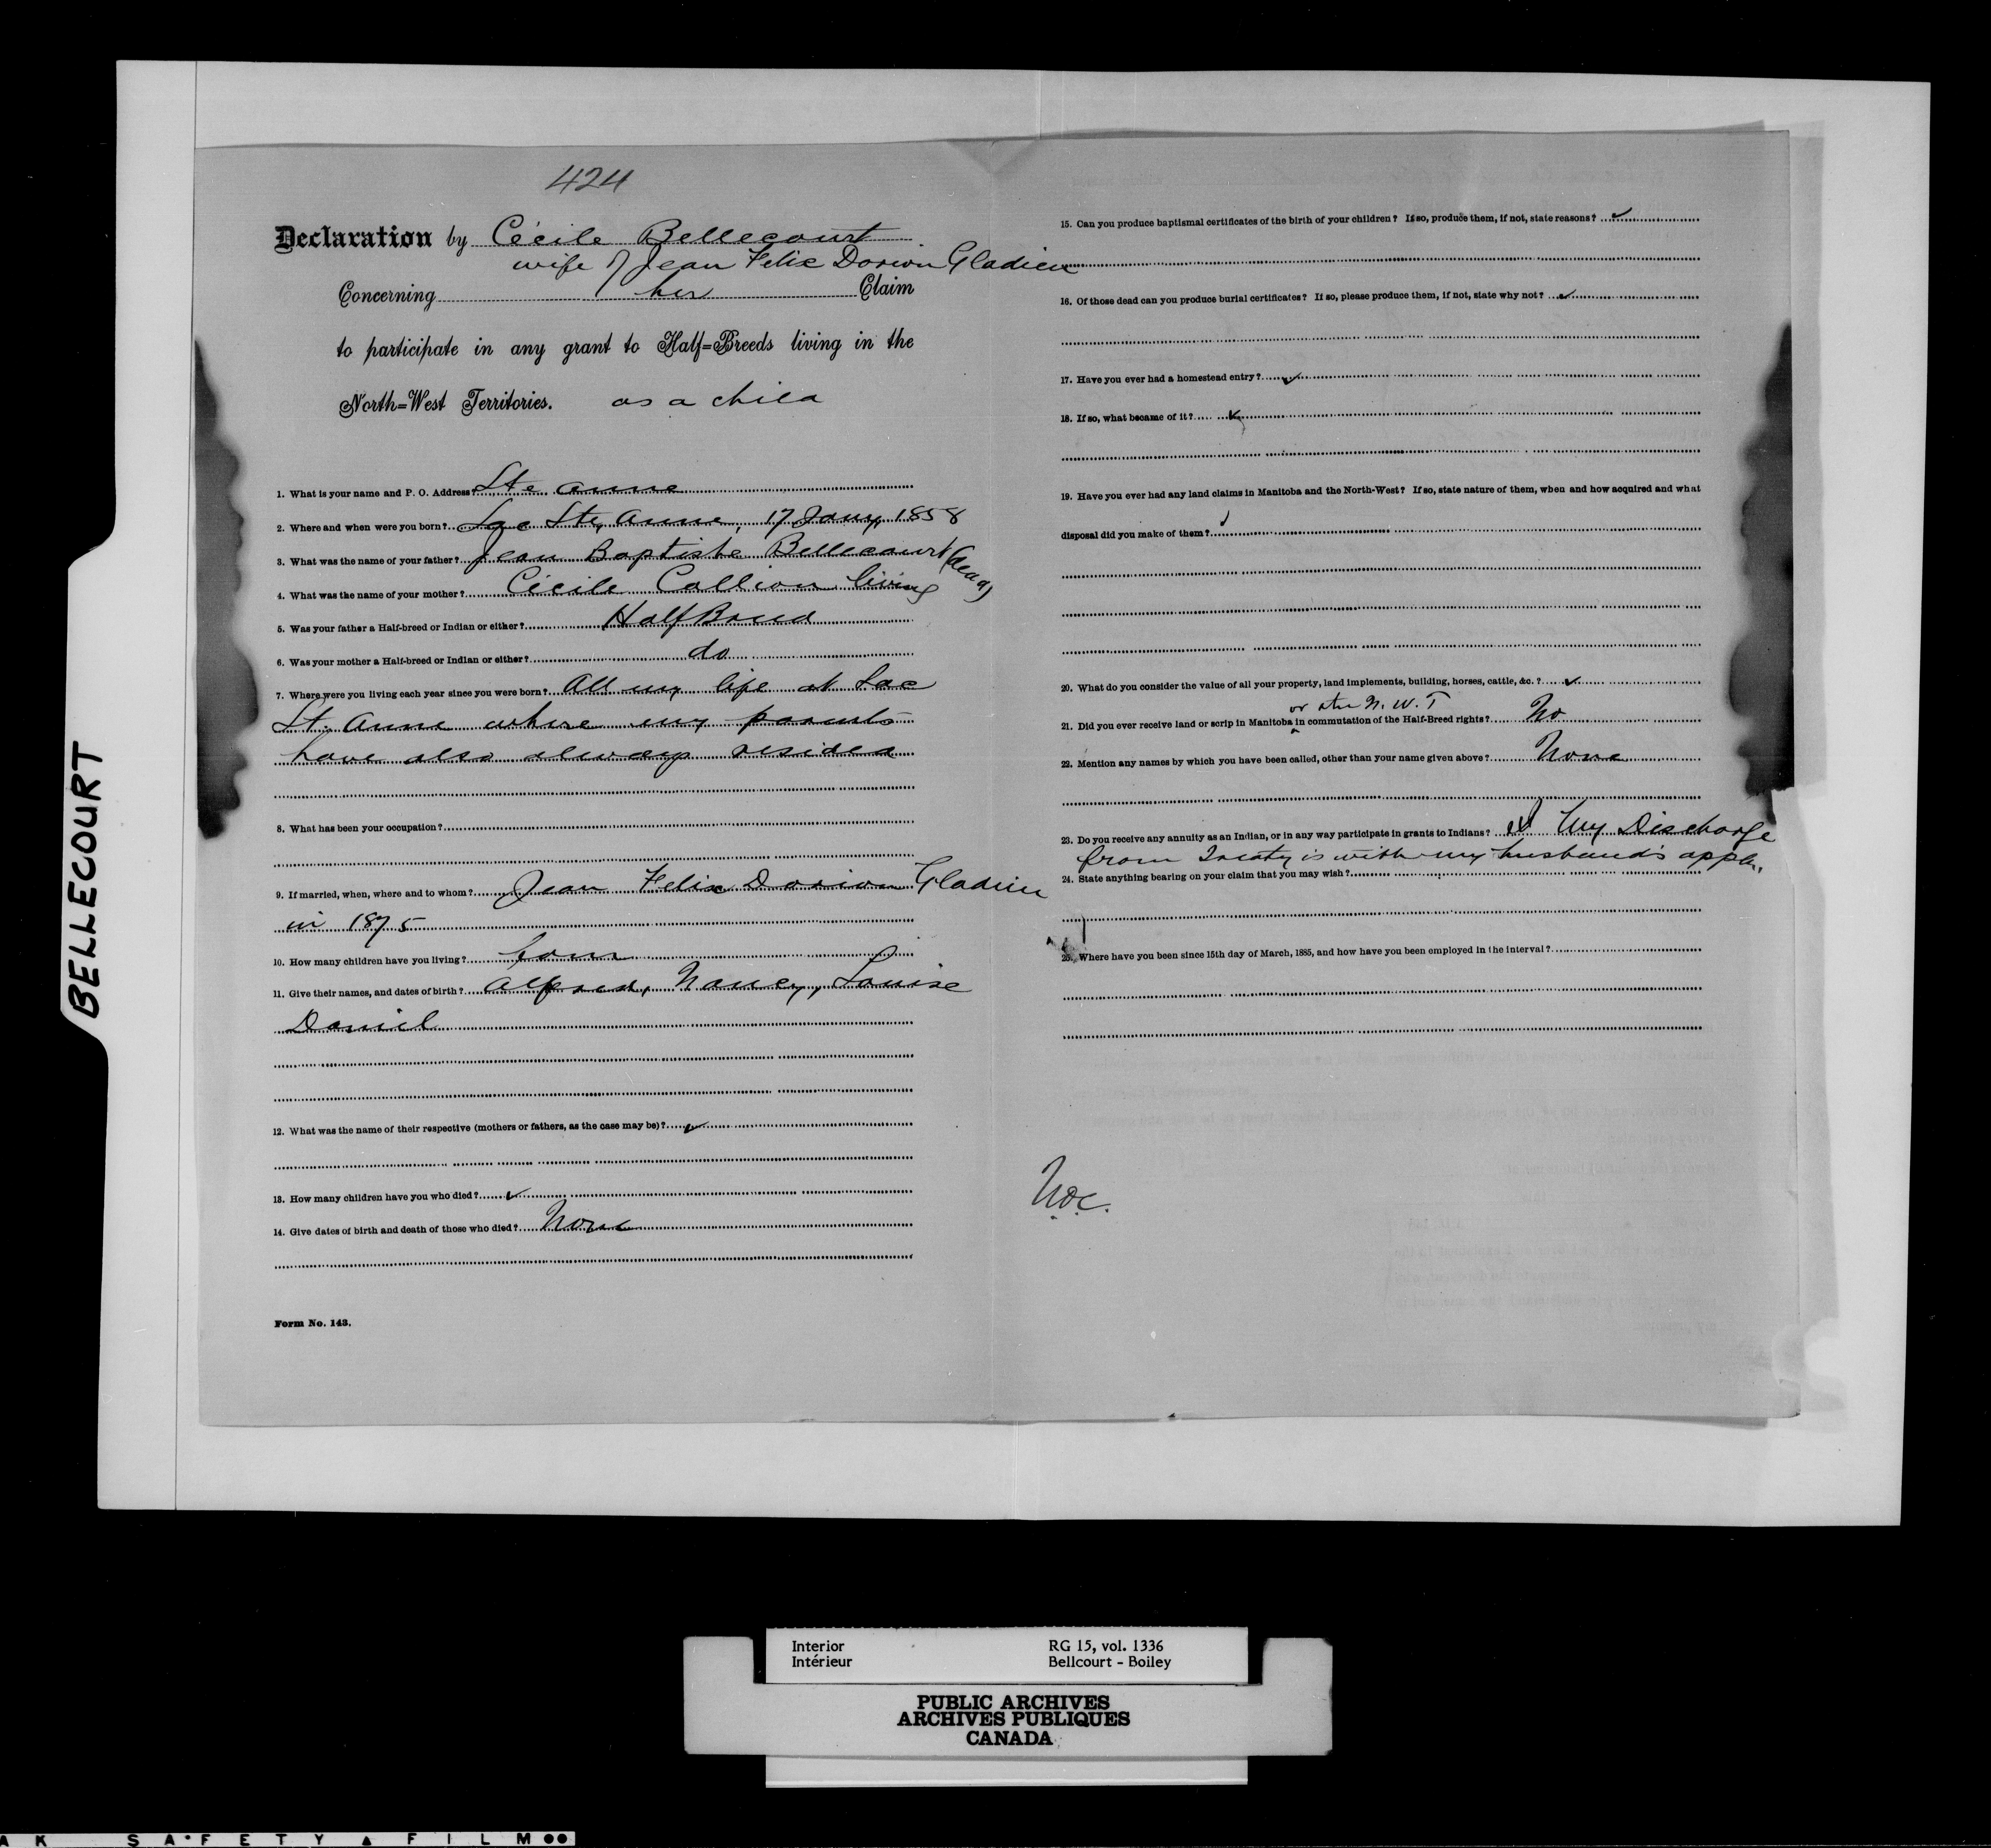 424
Declaration by Cécile Bellecourt
wife of Jean Felix Dorion Gladieu
Concerning her Claim
to participate in any grant to Half=Breeds living in the
North=West Territories. as a child
1. What is your name and P. O. Address? Ste Anne
2. Where and when were you born? Lac Ste, Anne, 17 Jany, 1858
3. What was the name of your father? Jean Baptiste Bellecourt (dead)
4. What was the name of your mother? Cécile Callion living
5. Was your father a Half-breed or Indian or either? Half Breed
6. Was your mother a Half-breed or Indian or either? do
7. Where were you living each year since you were born? All my life at Lac
St. Anne where my parents
have also always resided
8. What has been your occupation?
9. If married, when, where and to whom? Jean Felix Dorion Gladieu
in 1875
10. How many children have you living? four
11. Give their names, and dates of birth? Alfred, Nancy, Louise
Daniel
12. What was the name of their respective (mothers or fathers, as the case may be)?
13. How many children have you who died?
14. Give dates of birth and death of those who died? None
Form No. 143.
15. Can you produce baptismal certificates of the birth of your children? If so, produce them, if not, state reasons?
16. Of those dead can you produce burial certificates? If so, please produce them, if not, state why not?
17. Have you ever had a homestead entry?
18. If so, what became of it?
19. Have you ever had any land claims in Manitoba and the North-West? If so, state nature of them, when and how acquired and what
disposal did you make of them?
20. What do you consider the value of all your property, land implements, building, horses, cattle, &c. ?
or the N. W. T
21. Did you ever receive land or scrip in Manitoba in commutation of the Half-Breed rights? No
22. Mention any names by which you have been called, other than your name given above? None
23. Do you receive any annuity as an Indian, or in any way participate in grants to Indians? My Discharge
from Treaty is with my husband's appln.
24. State anything bearing on your claim that you may wish?
25. Where have you been since 15th day of March, 1885, and how have you been employed in the interval?
BELLECOURT
Interior RG 15, vol. 1336
Intérieur Bellcourt - Boiley
PUBLIC ARCHIVES
ARCHIVES PUBLIQUES
CANADA
A K SAFETY FILM